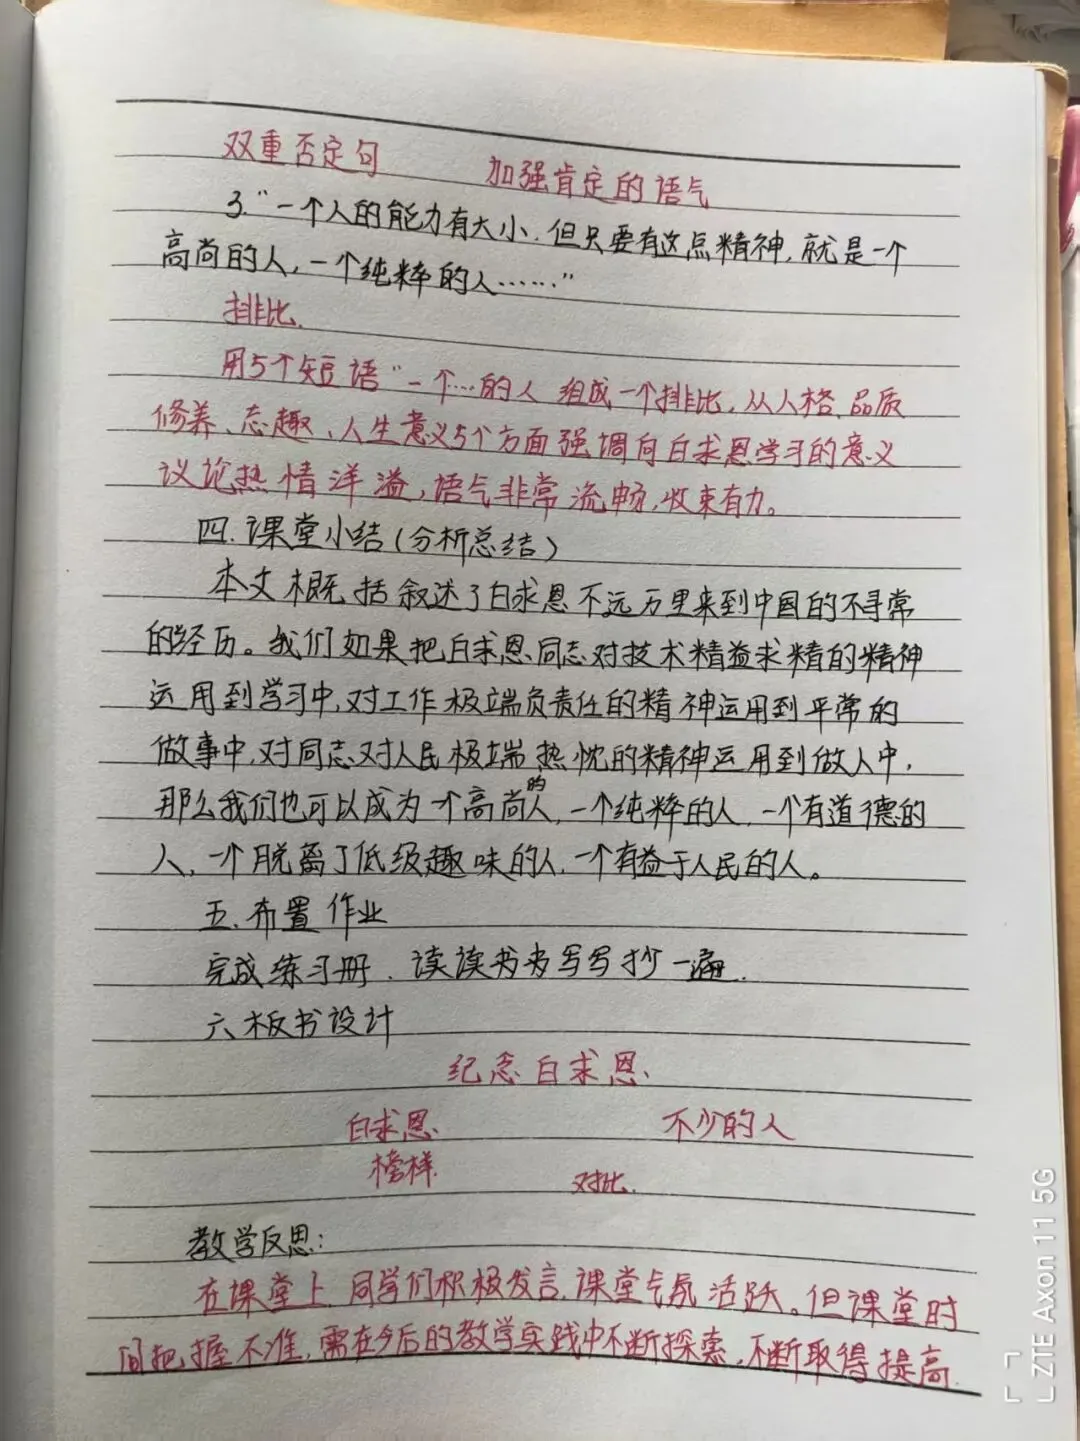 双重否定句 加强肯定的语气
3."一个人的能力有大小,但只要有这点精神,就是一个
高尚的人,一个纯粹的人……"
排比.
用5个短语"一个…的人 组成一个排比,从人格、品质
修养、志趣、人生意义5个方面强调向白求恩学习的意义
议论热情洋溢,语气非常流畅,收束有力。
四.课堂小结(分析总结)
本文概括叙述了白求恩不远万里来到中国的不寻常
的经历。我们如果把白求恩同志对技术精益求精的精神
运用到学习中,对工作极端负责任的精神运用到平常的
做事中,对同志对人民极端热忱的精神运用到做人中,
那么我们也可以成为一个高尚的人,一个纯粹的人,一个有道德的
人,一个脱离了低级趣味的人,一个有益于人民的人。
五.布置作业
完成练习册.读读书书写写抄一遍.
六.板书设计
纪念白求恩.
白求恩 不少的人
榜样. 对比.
教学反思:
在课堂上,同学们积极发言,课堂气氛活跃。但课堂时
间把握不准,需在今后的教学实践中不断探索,不断取得提高.
ZTE Axon 11 5G